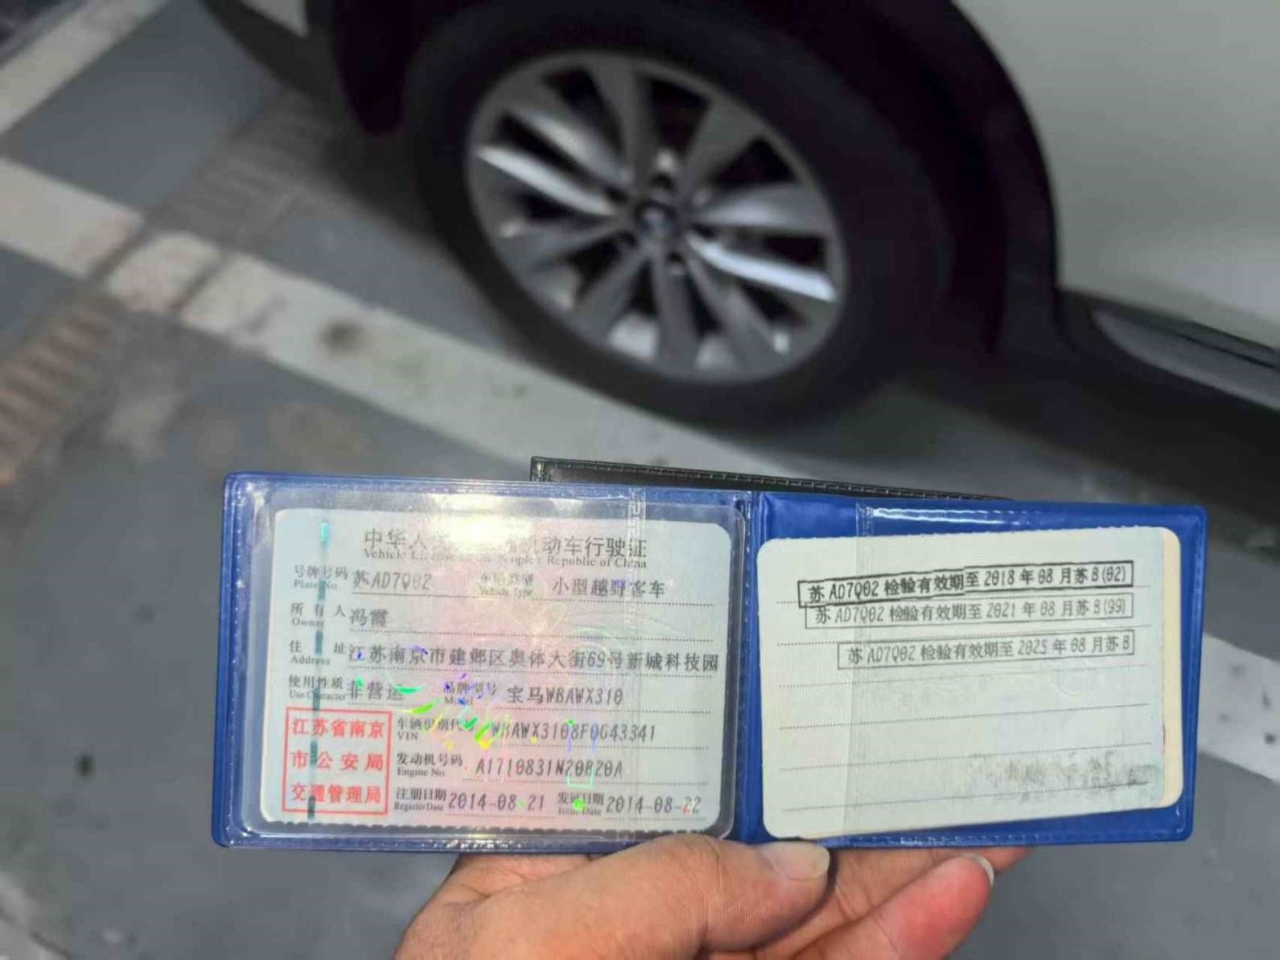 中华人 动车行驶证
Vehicle License People's Republic of China
号牌号码 苏AD7Q02 车辆类型 小型越野客车
Plate No. Vehicle Type
所有人 冯霞
Owner
住址 江苏南京市建邺区奥体大街69号新城科技园
Address
使用性质 非营运 品牌型号 宝马WBAWX310
Use Character Model
江苏省南京
市公安局
交通管理局
车辆识别代 WBAWX3108F0G43341
VIN
发动机号码 A1710831N20B20A
Engine No.
注册日期 2014-08-21 发证日期 2014-08-22
Register Date Issue Date
苏AD7Q02检验有效期至2018年08月苏B(02)
苏AD7Q02检验有效期至2021年08月苏B(99)
苏AD7Q02检验有效期至2025年08月苏B